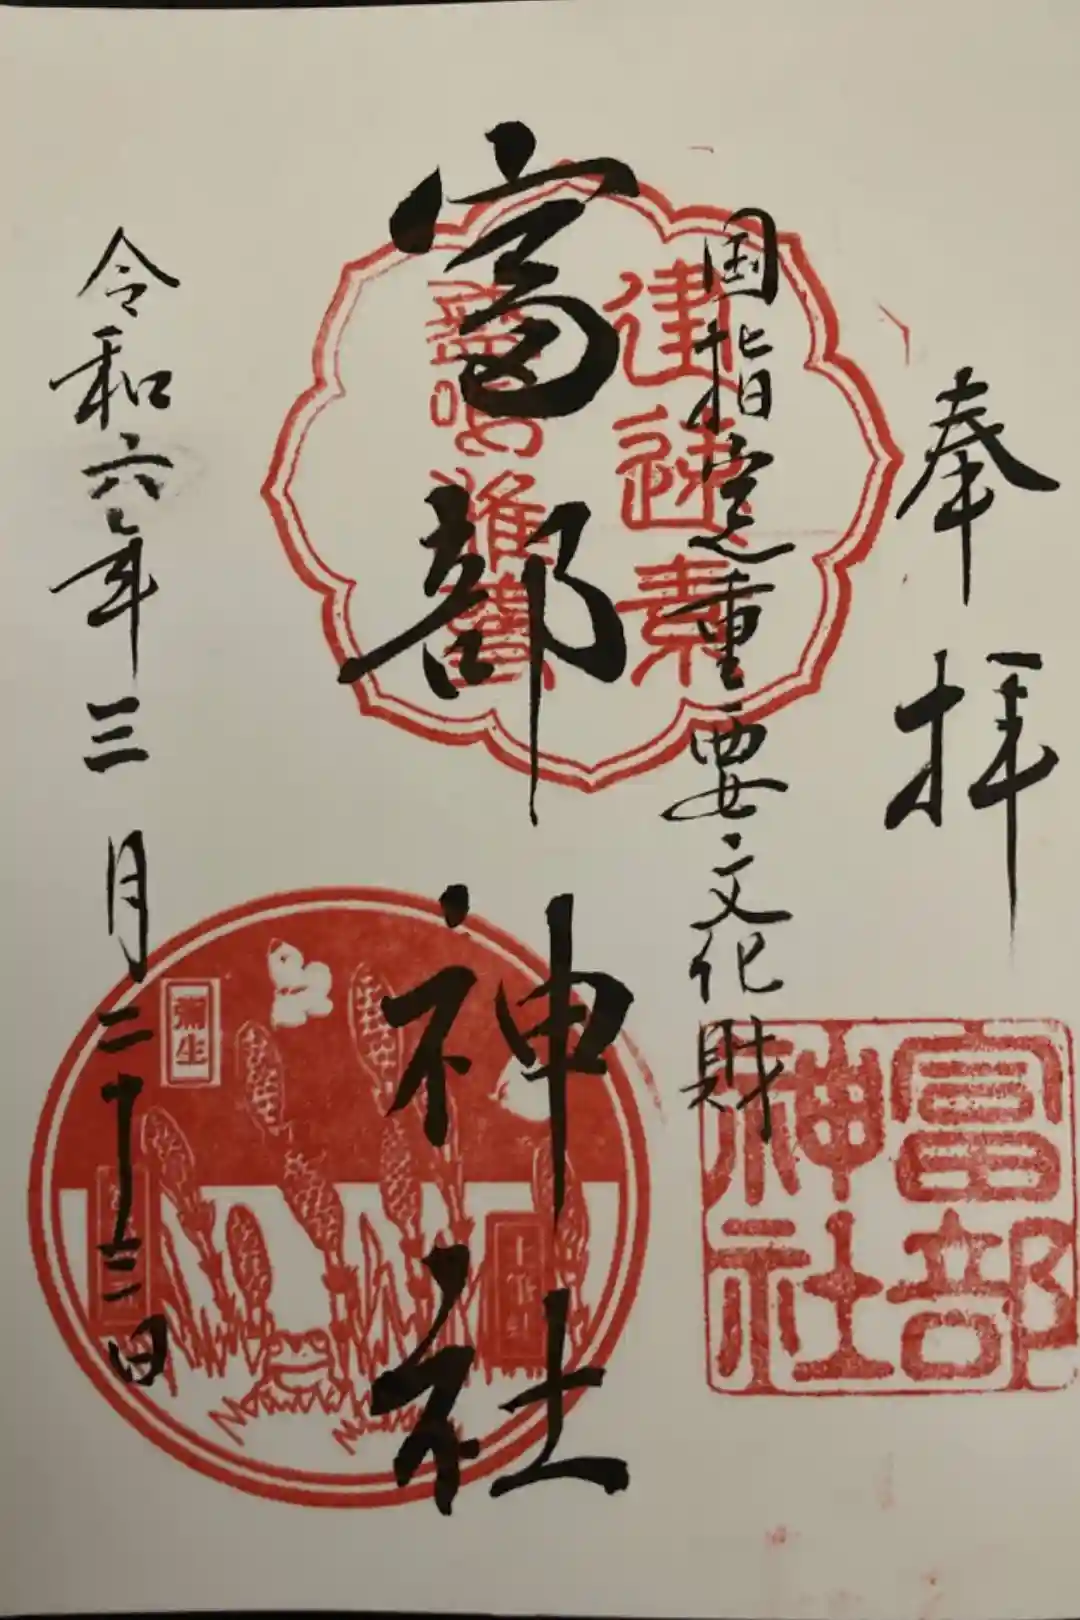 奉拝
国指定重要文化財
富部神社
令和六年三月二十三日
建速素
盞嗚尊
富部
神社
弥生